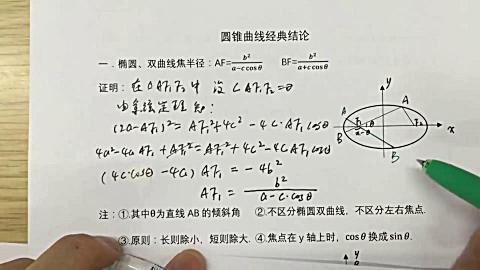 圆锥曲线经典结论
一．椭圆、双曲线焦半径：AF=b²/(a−c cosθ) BF=b²/(a+c cosθ)
证明：在△AF₁F₂中 设∠AF₁F₂=θ
由余弦定理知：
(2a−AF₁)²=AF₁²+4c²−4c·AF₁cosθ
4a²−4aAF₁+AF₁²=AF₁²+4c²−4cAF₁cosθ
(4c·cosθ−4a)AF₁=−4b²
AF₁=b²/(a−c·cosθ)
注：①.其中θ为直线 AB 的倾斜角 ②.不区分椭圆双曲线，不区分左右焦点.
③.原则：长则除小，短则除大. ④.焦点在 y 轴上时，cosθ 换成 sinθ.
y
A
A
F₁
θ
F₂
x
B
B
y